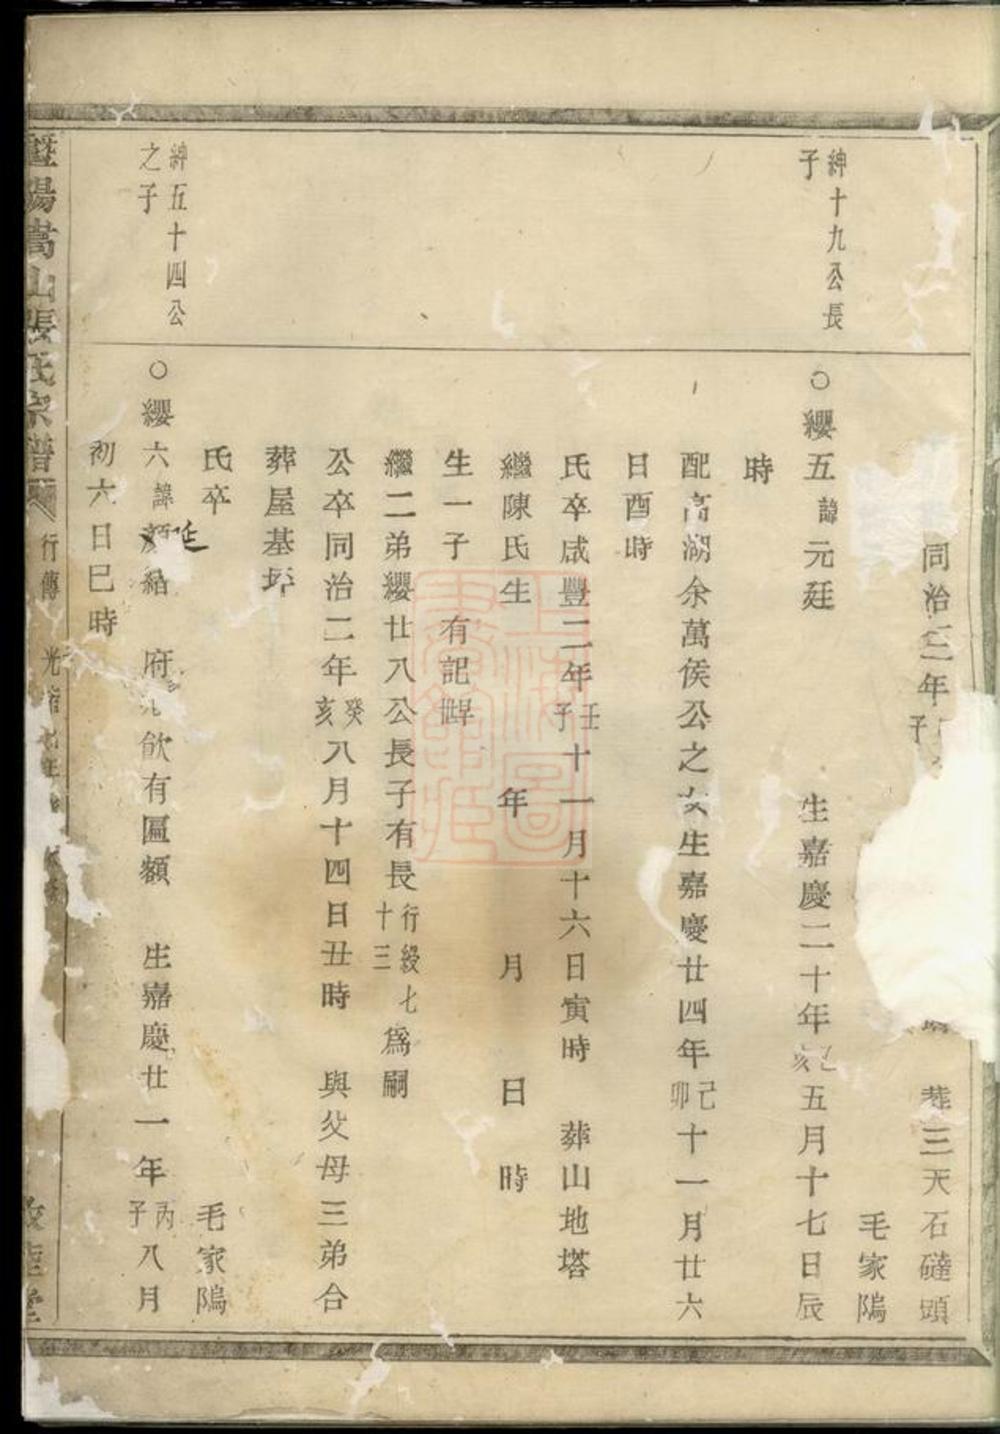 同治三年子
葬三天石磋頭
毛家隖
紳十九公長
子
○纓五諱元廷
生嘉慶二十年乙亥五月十七日辰
時
配高湖余萬侯公之女生嘉慶廿四年己卯十一月廿六
日酉時
氏卒咸豐二年壬子十一月十六日寅時 葬山地塔
繼陳氏生 年 月 日 時
生一子 有記
繼二弟纓廿八公長子有長行綬七十三為嗣
公卒同治二年癸亥八月十四日丑時 與父母三弟合
葬屋基坪
氏卒
毛家隖
紳五十四公
之子
○纓六諱 延
府 飲有匾額 生嘉慶廿一年丙子八月
初六日巳時
暨陽嵩山張氏宗譜
行傳
光緒